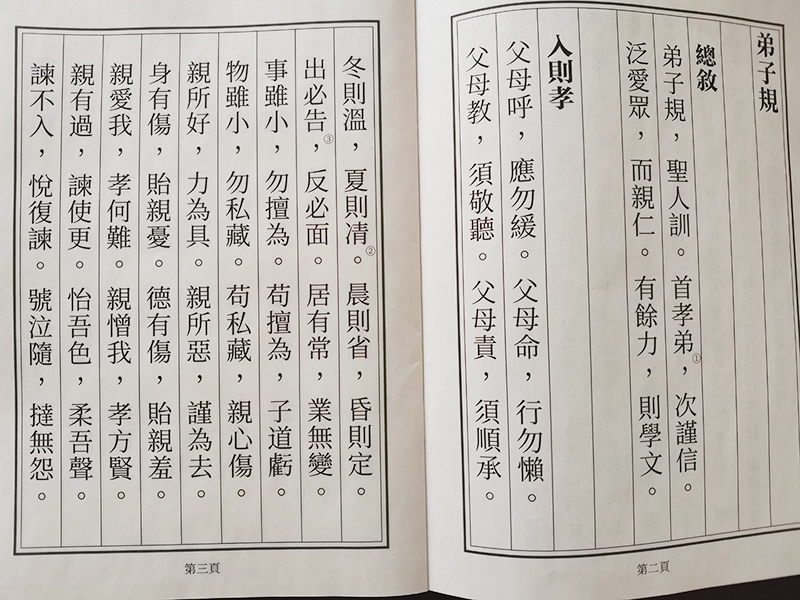 弟子規
總敘
弟子規，聖人訓。首孝弟①，次謹信。
泛愛眾，而親仁。有餘力，則學文。
入則孝
父母呼，應勿緩。父母命，行勿懶。
父母教，須敬聽。父母責，須順承。
第二頁
冬則溫，夏則凊②。晨則省，昏則定。
出必告③，反必面。居有常，業無變。
事雖小，勿擅為。苟擅為，子道虧。
物雖小，勿私藏。苟私藏，親心傷。
親所好，力為具。親所惡，謹為去。
身有傷，貽親憂。德有傷，貽親羞。
親愛我，孝何難。親憎我，孝方賢。
親有過，諫使更。怡吾色，柔吾聲。
諫不入，悅復諫。號泣隨，撻無怨。
第三頁